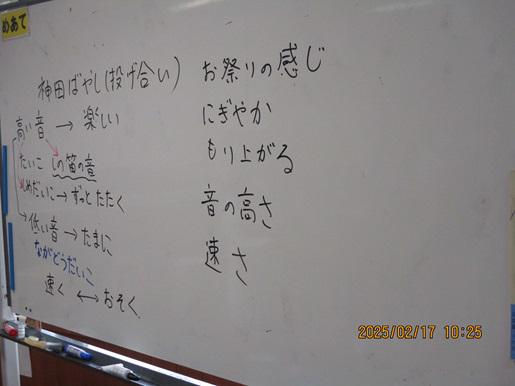 めあて
神田ばやし(投げ合い)
高い音→楽しい
たいこ しの笛の音
しめだいこ→ずっとたたく
→低い音→たまに
ながどうだいこ
速く←→おそく
お祭りの感じ
にぎやか
もり上がる
音の高さ
速さ
2025/02/17 10:25